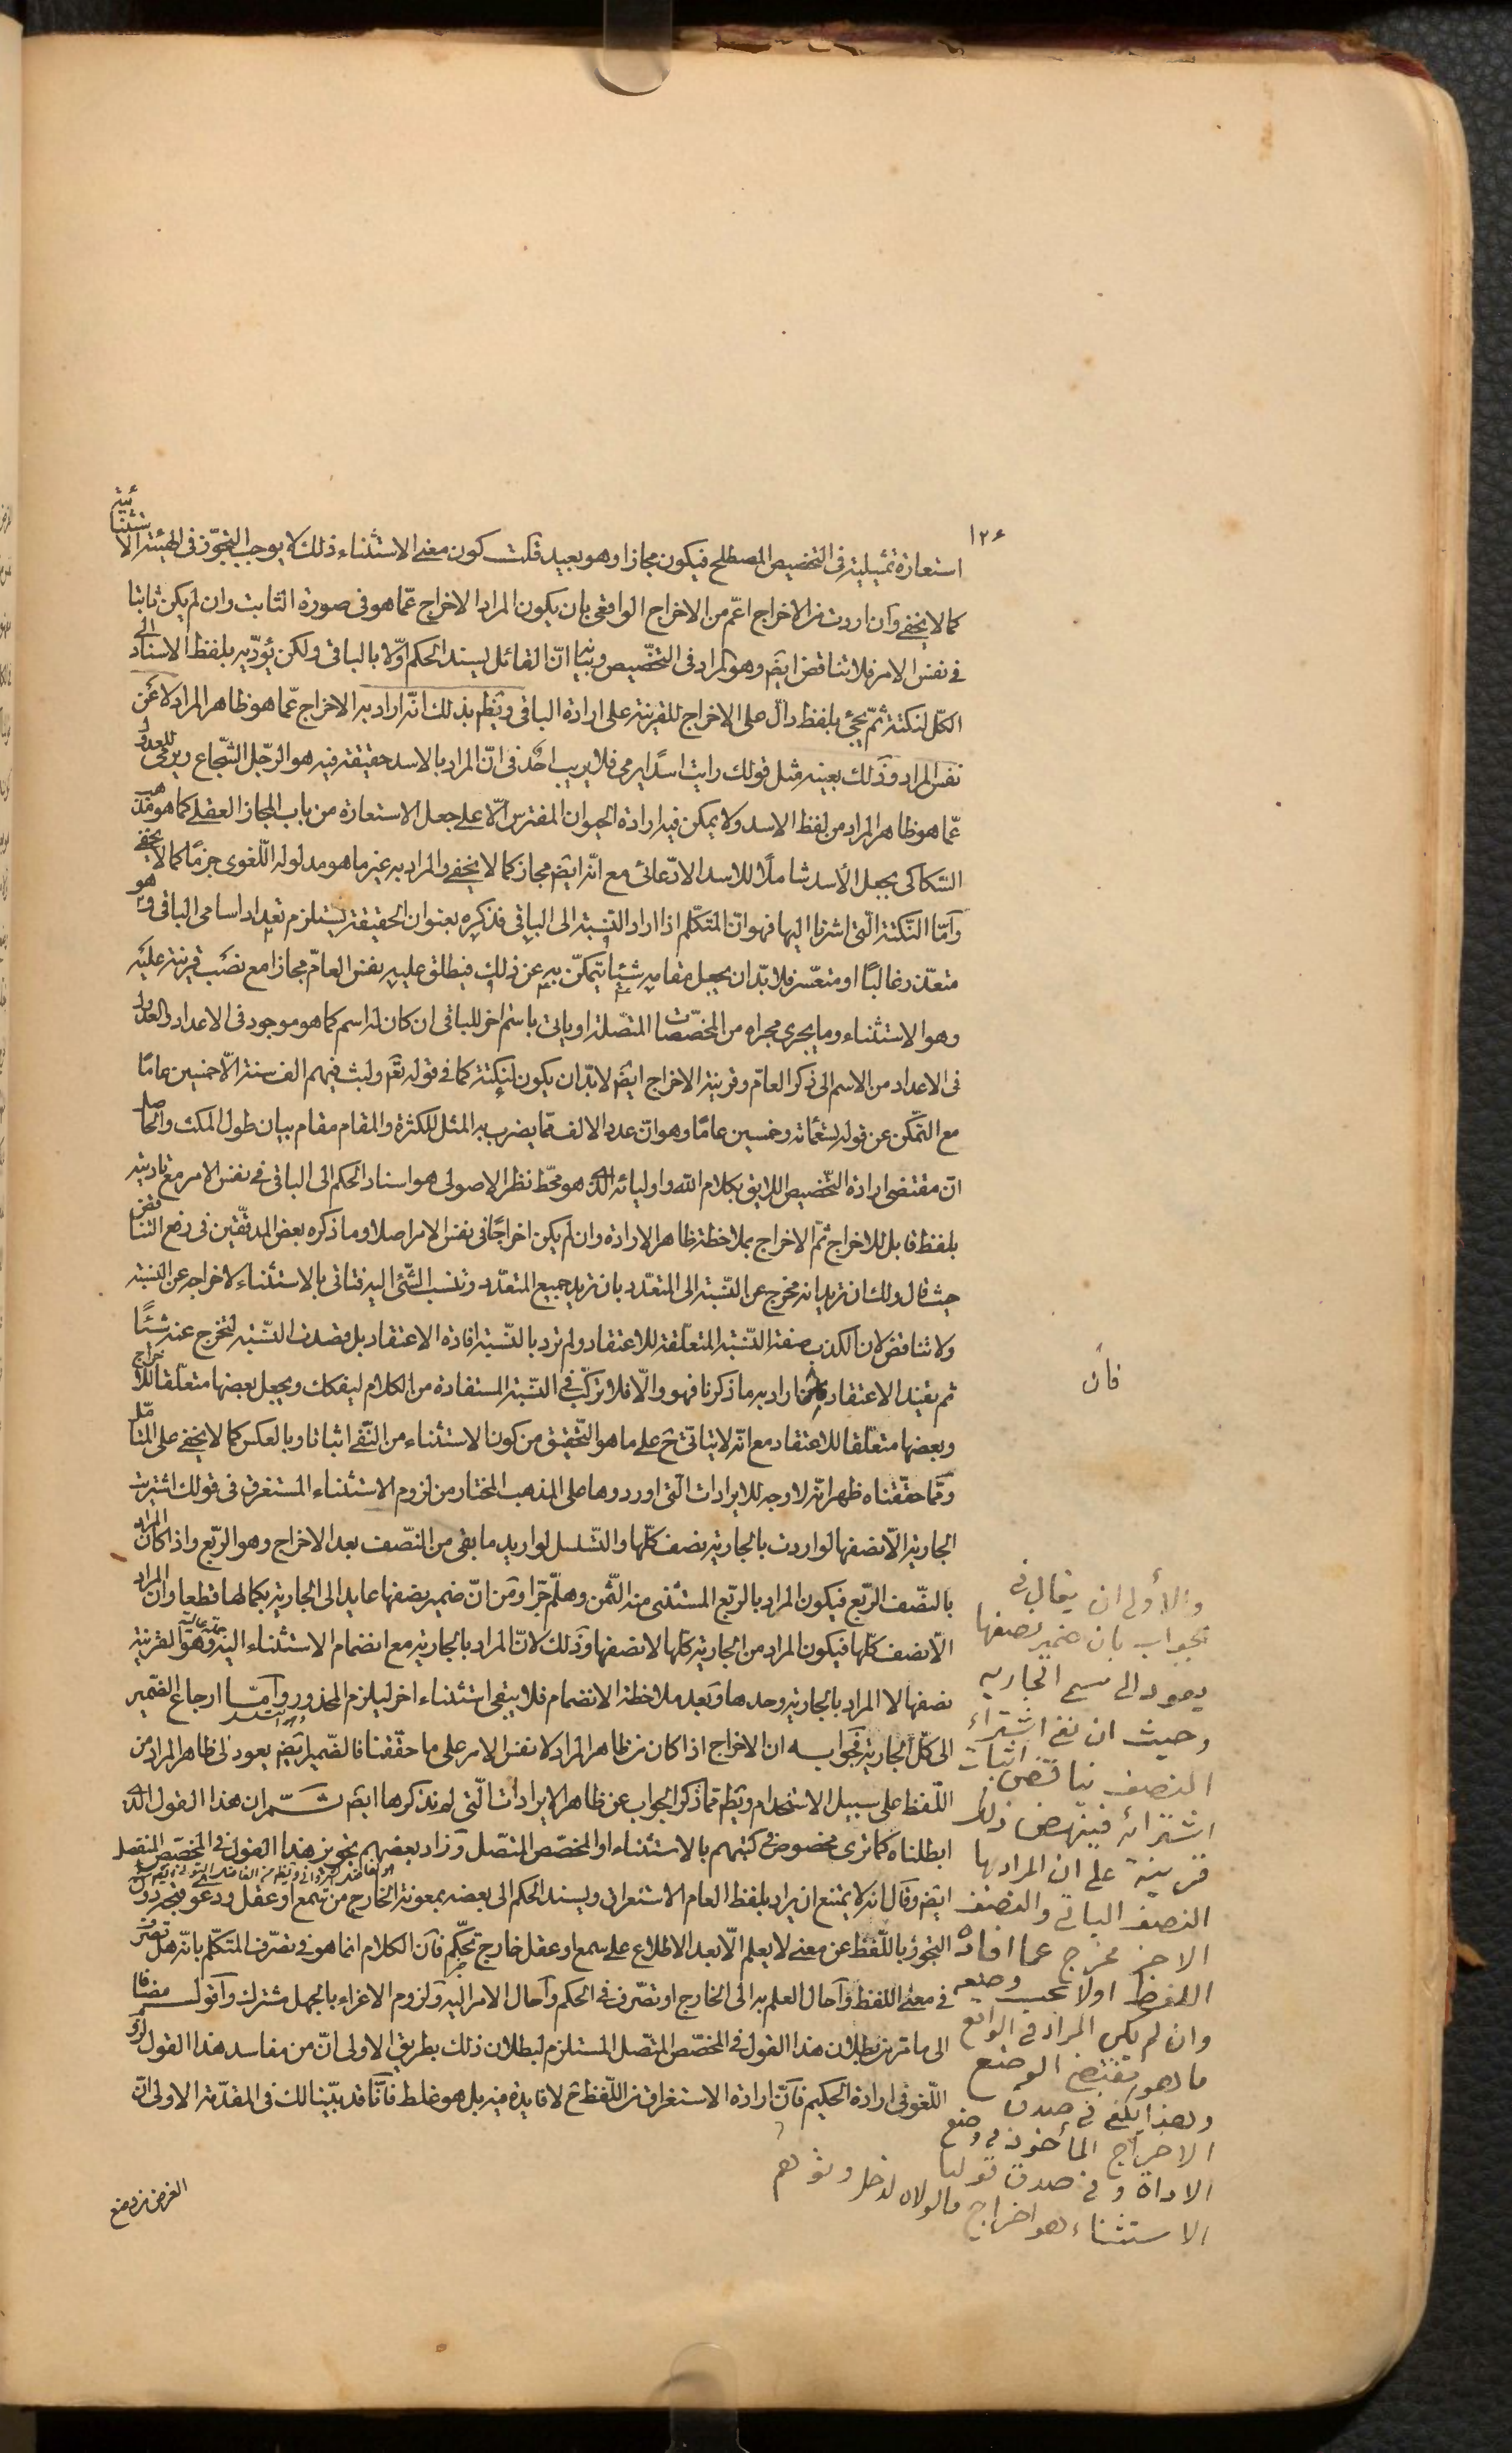 ١٢٤
استعارة تمثيلية فى التخصيص المصطلح فيكون مجازا وهو بعيد قلت كون معنى الاستثناء ذلك لا يوجب التجوّز فى الهيئة الاستثنائية
كما لا يخفى وان اردت من الاخراج اعمّ من الاخراج الواقعى بان يكون المراد الاخراج عمّا هو فى صورة الثابت وان لم يكن ثابتا
فى نفس الامر فلا تناقض ايضم وهو المراد فى التخصيص وبيانه انّ القائل يسند الحكم اوّلا بالباقى ولكن يؤدّيه بلفظ الاسناد الى
الكلّ لنكتة ثمّ يجئ بلفظ دالّ على الاخراج للقرينة على ارادة الباقى ويظهر بذلك انّه اراد به الاخراج عمّا هو ظاهر المراد لا عن
نفس المراد وذلك بعينه مثل قولك رايت اسدًا يرمى فلا يريب احد فى انّ المراد بالاسد حقيقة فيه هو الرّجل الشّجاع ويرمى للعدول
عمّا هو ظاهر المراد من لفظ الاسد ولا يمكن فيه ارادة الحيوان المفترس الّا على جعل الاستعارة من باب المجاز العقلى كما هو مذهب
السّكاكى بجعل الأسد شاملًا للاسد الادّعائى مع انّه ايضم مجاز كما لا يخفى والمراد به غير ما هو مدلوله اللّغوى جزمًا كما لا يخفى
وآمّا النّكتة الّتى اشرنا اليها فهو انّ المتكلّم اذا اراد النّسبة الى الباقى فذكره بعنوان الحقيقة يستلزم تعداد اسامى الباقى وهو
متعذّر غالبًا او متعسّر فلا بدّ ان يجعل مقامه شيئا يتمكّن به عن ذلك فيطلق عليه نفس العامّ مجازا مع نصب قرينة عليه
وهو الاستثناء وما يجرى مجراه من المخصّصات المتّصلة او ياتى باسم اخر للباقى ان كان له اسم كما هو موجود فى الاعداد والعدول
فى الاعداد من الاسم الى ذكر العامّ وقرينة الاخراج ايضم لا بدّ ان يكون لنكتة كما فى قوله تعم ولبث فيهم الف سنة الّا خمسين عامًا
مع التّمكن عن قوله تسعمائة وخمسين عامًا وهو انّ عدد الالف ممّا يضرب به المثل للكثرة والمقام مقام بيان طول المكث والحاصل
انّ مقتضى ارادة التّخصيص اللايق بكلام الله واوليائه الّذى هو محّط نظر الاصولى هو اسناد الحكم الى الباقى فى نفس الامر مع تاديته
بلفظ قابل للاخراج ثمّ الاخراج بملاحظة ظاهر الارادة وان لم يكن اخراجًا فى نفس الامر اصلا وما ذكره بعض المدقّقين فى رفع التناقض
حيث قال ولك ان تريد انه مخرج عن النّسبة الى المتعدّد بان تريد جميع المتعدّد وتنسب الشّئ اليه فتاتى بالاستثناء لاخراجه عن النسبة
ولا تناقض لان الكذب صفة النّسبة المتعلّقة للاعتقاد ولم ترد بالنّسبة افادة الاعتقاد بل قصدت النّسبة لتخرج عنه شيئًا
ثم يفيد الاعتقاد فان اراد به ما ذكرنا فهو والّا فلا تركّب فى النّسبة المستفادة من الكلام ليفكك ويجعل بعضها متعلّقا للاخراج
فان
وبعضها متعلّقا للاعتقاد مع انّه لا يتاتّى ح على ما هو التّحقيق من كون الاستثناء من النّفى اثباتا وبالعكس كما لا يخفى على المتامّل
وممّا حقّقناه ظهر انّه لا وجه للايرادات الّتى اوردوها على المذهب المختار من لزوم الاستثناء المستغرق فى قولك اشتريت
الجارية الّا نصفها لو اردت بالجارية نصف كلّها والتّسلسل لو اريد ما بقى من النّصف بعد الاخراج وهو الرّبع واذا كان المراد
بالنصّف الرّبع فيكون المراد بالرّبع المستثنى منه الثّمن وهلّم جرّا ومن انّ ضمير نصفها عايد الى الجارية بكمالها قطعا وان المراد
الّا نصف كلّها فيكون المراد من الجارية كلّها لا نصفها وذلك لانّ المراد بالجارية مع انضمام الاستثناء اليه وهو القرينة
نصفها لا المراد بالجارية وحدها وبعد ملاحظة الانضمام فلا يبقى استثناء اخر ليلزم المحذور وآمّا ارجاع الضّمير
الى كلّ الجارية فجوابه ان الاخراج اذا كان من ظاهر المراد لا نفس الامر على ما حقّقنا فالضّمير ايضم يعود الى ظاهر المراد من
اللّفظ على سبيل الاستخدام ويظهر ممّا ذكر الجواب عن ظاهر الايرادات الّتى لم نذكرها ايضم ثمّ ان هذا القول الّذى
ابطلناه كما ترى مخصوص فى كتبهم بالاستثناء او المخصّص المتّصل وزاد بعضهم تجويز هذا القول فى المخصّص المنفصل
ايضم وقال انه لا يمتنع ان يراد بلفظ العام الاستغراق ويسند الحكم الى بعضه بمعونة الخارج من سمع او عقل ودعوى
التجوّز باللّفظ عن معنى لا يعلم الّا بعد الاطلاع على سمع او عقل خارج تحكّم فان الكلام انما هو فى تصّرف المتكلّم بانّه هل تصّرف
فى معنى اللفظ وآحال العلم به الى الخارج او تصّرف فى الحكم وآحال الامر اليه ولزوم الاغراء بالجهل مشترك وآقول مضافا
الى ما مّر من بطلان هذا القول فى المخصّص المتّصل المستلزم لبطلان ذلك بطريق الاولى انّ من مفاسد هذا القول لزوم
اللّغو فى ارادة الحكيم فآنّ ارادة الاستغراق من اللّفظ ح لا فايدة فيه بل هو غلط فآنّا قد بيّنا لك فى المقدّمة الاولى انّ
الغرض من وضع
والأولى ان يقال فى
الجواب بان ضمير نصفها
يعود الى مسمى الجارية
وحيث ان نفى اشتراء
النصف يناقض اثبات
اشترائه فينهض ذلك
قرينة على ان المراد بها
النصف الباقى والنصف
الاخر مخرج عما افاده
اللفظ اولا بحسب وضعه
وان لم يكن المراد فى الواقع
ما هو مقتضى الوضع
وهذا يكفى فى صدق
الاخراج المأخوذ فى وضع
الاداة وفى صدق قولنا
الاستثناء هو اخراج ما لولاه لدخل